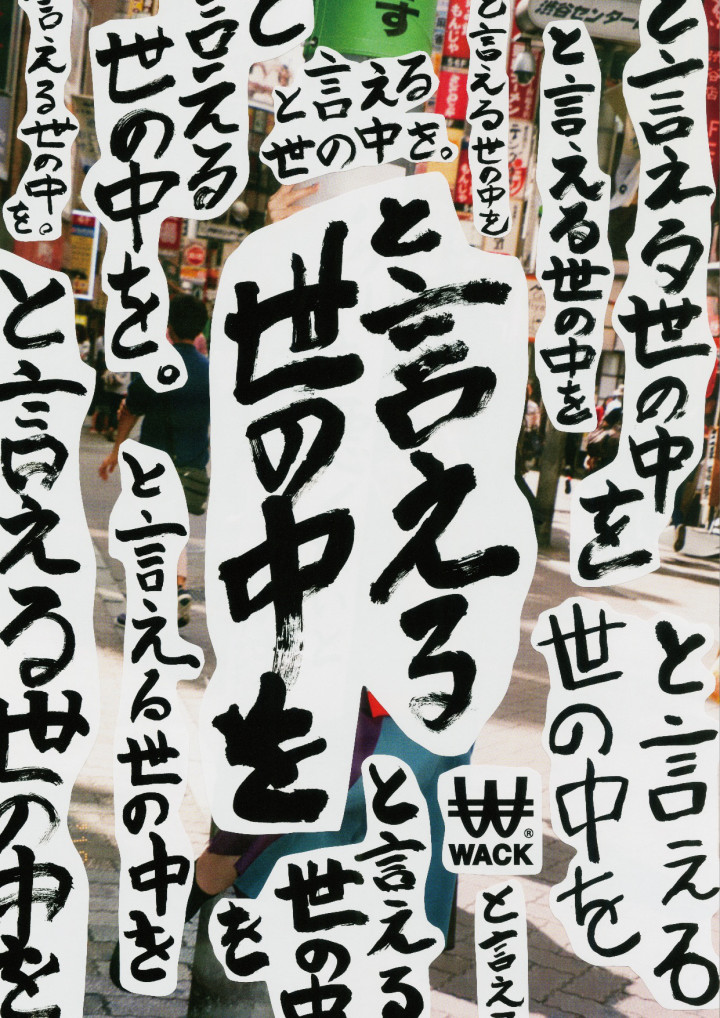 す
渋谷センター
もんじゃ
と言える世の中
を
と言える世の中を
と言える世の中を
と言える
世の中を。
と言える
世の中を。
言える世の中。
を
と言える
世の中を
と言える世の中を
と言える世の中を
と言える
世の中を
と言える
世の中
を
WACK
®
と言え